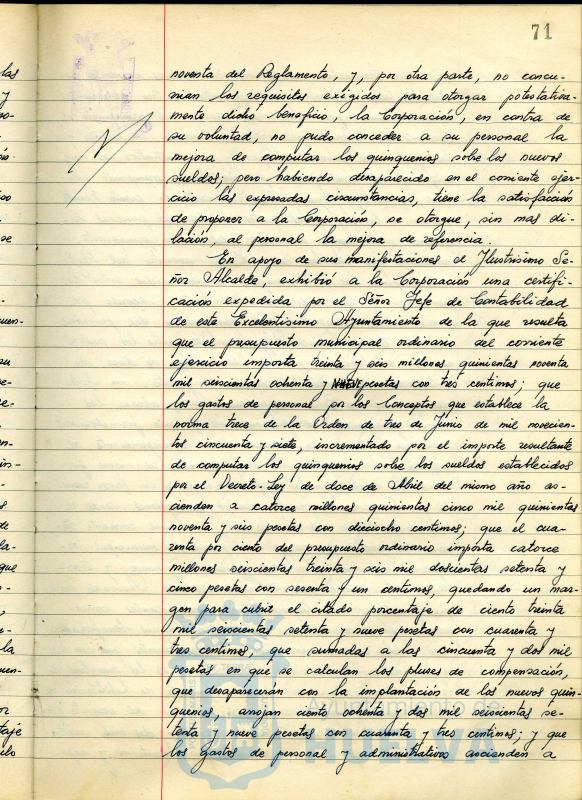 71
noventa del Reglamento, y, por otra parte, no concu-
rrian los requisitos exigidos para otorgar potestativa-
mente dicho beneficio, la Corporación, en contra de
su voluntad, no pudo conceder a su personal la
mejora de computar los quinquenios sobre los nuevos
sueldos; pero habiendo desaparecido en el corriente ejer-
cicio las expresadas circunstancias, tiene la satisfacción
de proponer a la Corporación, se otorgue, sin más di-
lación, al personal la mejora de referencia.
En apoyo de sus manifestaciones el Ilustrísimo Se-
ñor Alcalde, exhibió a la Corporación una certifi-
cación expedida por el Señor Jefe de Contabilidad
de este Excelentísimo Ayuntamiento de la que resulta
que el presupuesto municipal ordinario del corriente
ejercicio importa treinta y seis millones quinientas noventa
mil seiscientas ochenta y NUEVE pesetas con tres centimos; que
los gastos de personal por los Conceptos que establece la
norma trece de la Orden de tres de Junio de mil novecien-
tos cincuenta y siete, incrementado por el importe resultante
de computar los quinquenios sobre los sueldos establecidos
por el Decreto-Ley de doce de Abril del mismo año as-
cienden a catorce millones quinientas cinco mil quinientas
noventa y seis pesetas con dieciocho centimos; que el cua-
renta por ciento del presupuesto ordinario importa catorce
millones seiscientas treinta y seis mil doscientas setenta y
cinco pesetas con sesenta y un centimos, quedando un mar-
gen para cubrir el citado porcentaje de ciento treinta
mil seiscientas setenta y nueve pesetas con cuarenta y
tres centimos, que sumadas a las cincuenta y dos mil
pesetas en que se calculan los pluses de compensación,
que desaparecerán con la implantación de los nuevos quin-
quenios, arrojan ciento ochenta y dos mil seiscientas se-
tenta y nueve pesetas con cuarenta y tres centimos; y que
los gastos de personal y administrativos ascienden a